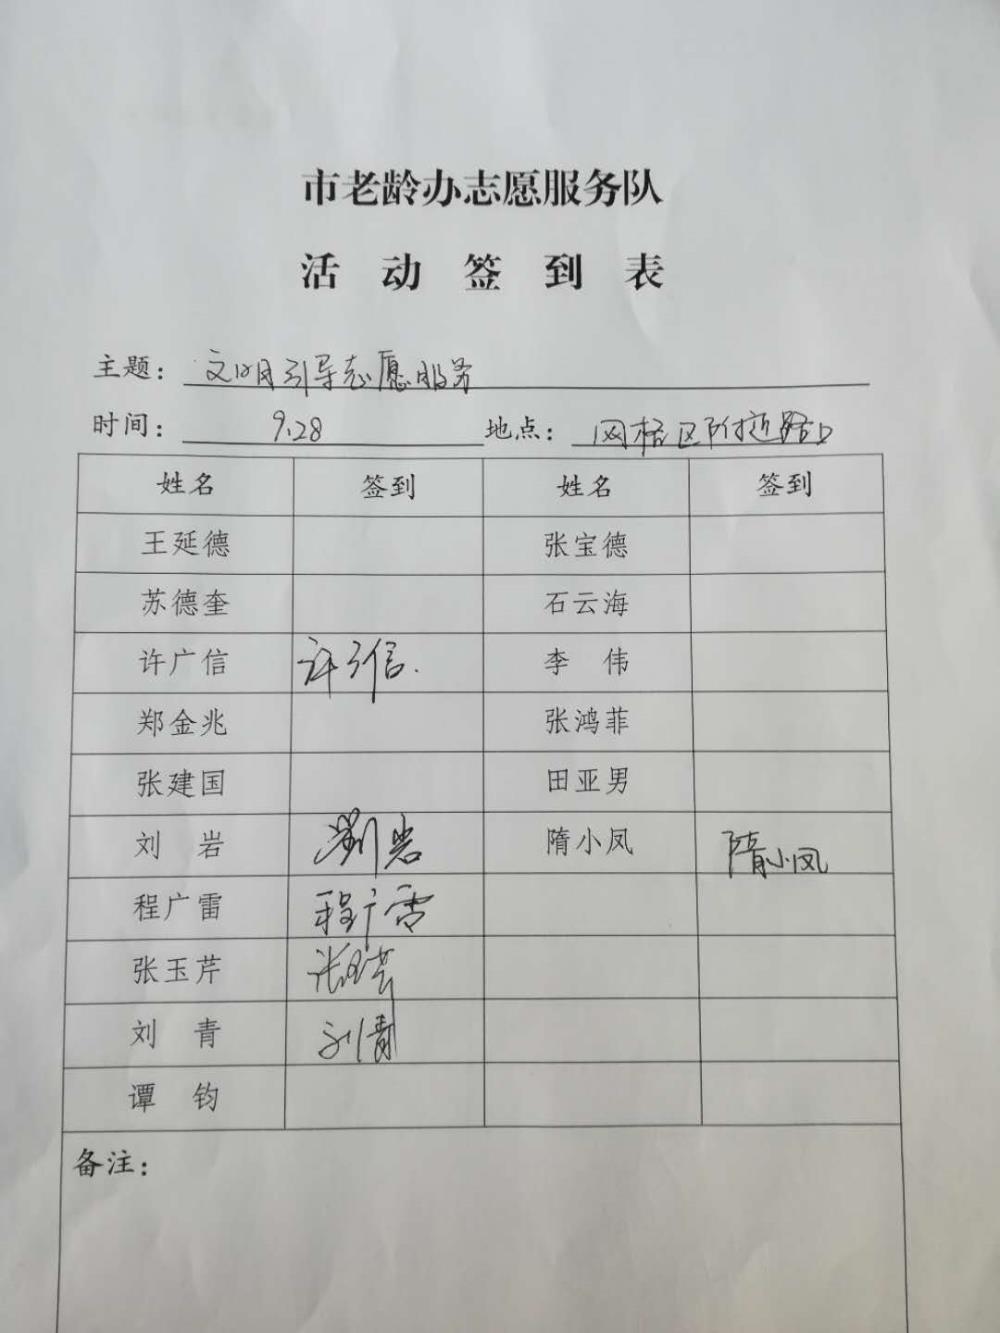 市老龄办志愿服务队
活 动 签 到 表
主题：文明引导志愿服务
时间：9.28 地点：网格区附近路口
姓名 签到 姓名 签到
王延德 张宝德
苏德奎 石云海
许广信 许广信. 李 伟
郑金兆 张鸿菲
张建国 田亚男
刘 岩 劉岩 隋小凤 隋小凤
程广雷 程广雷
张玉芹 张玉芹
刘 青 刘青
谭 钧
备注：